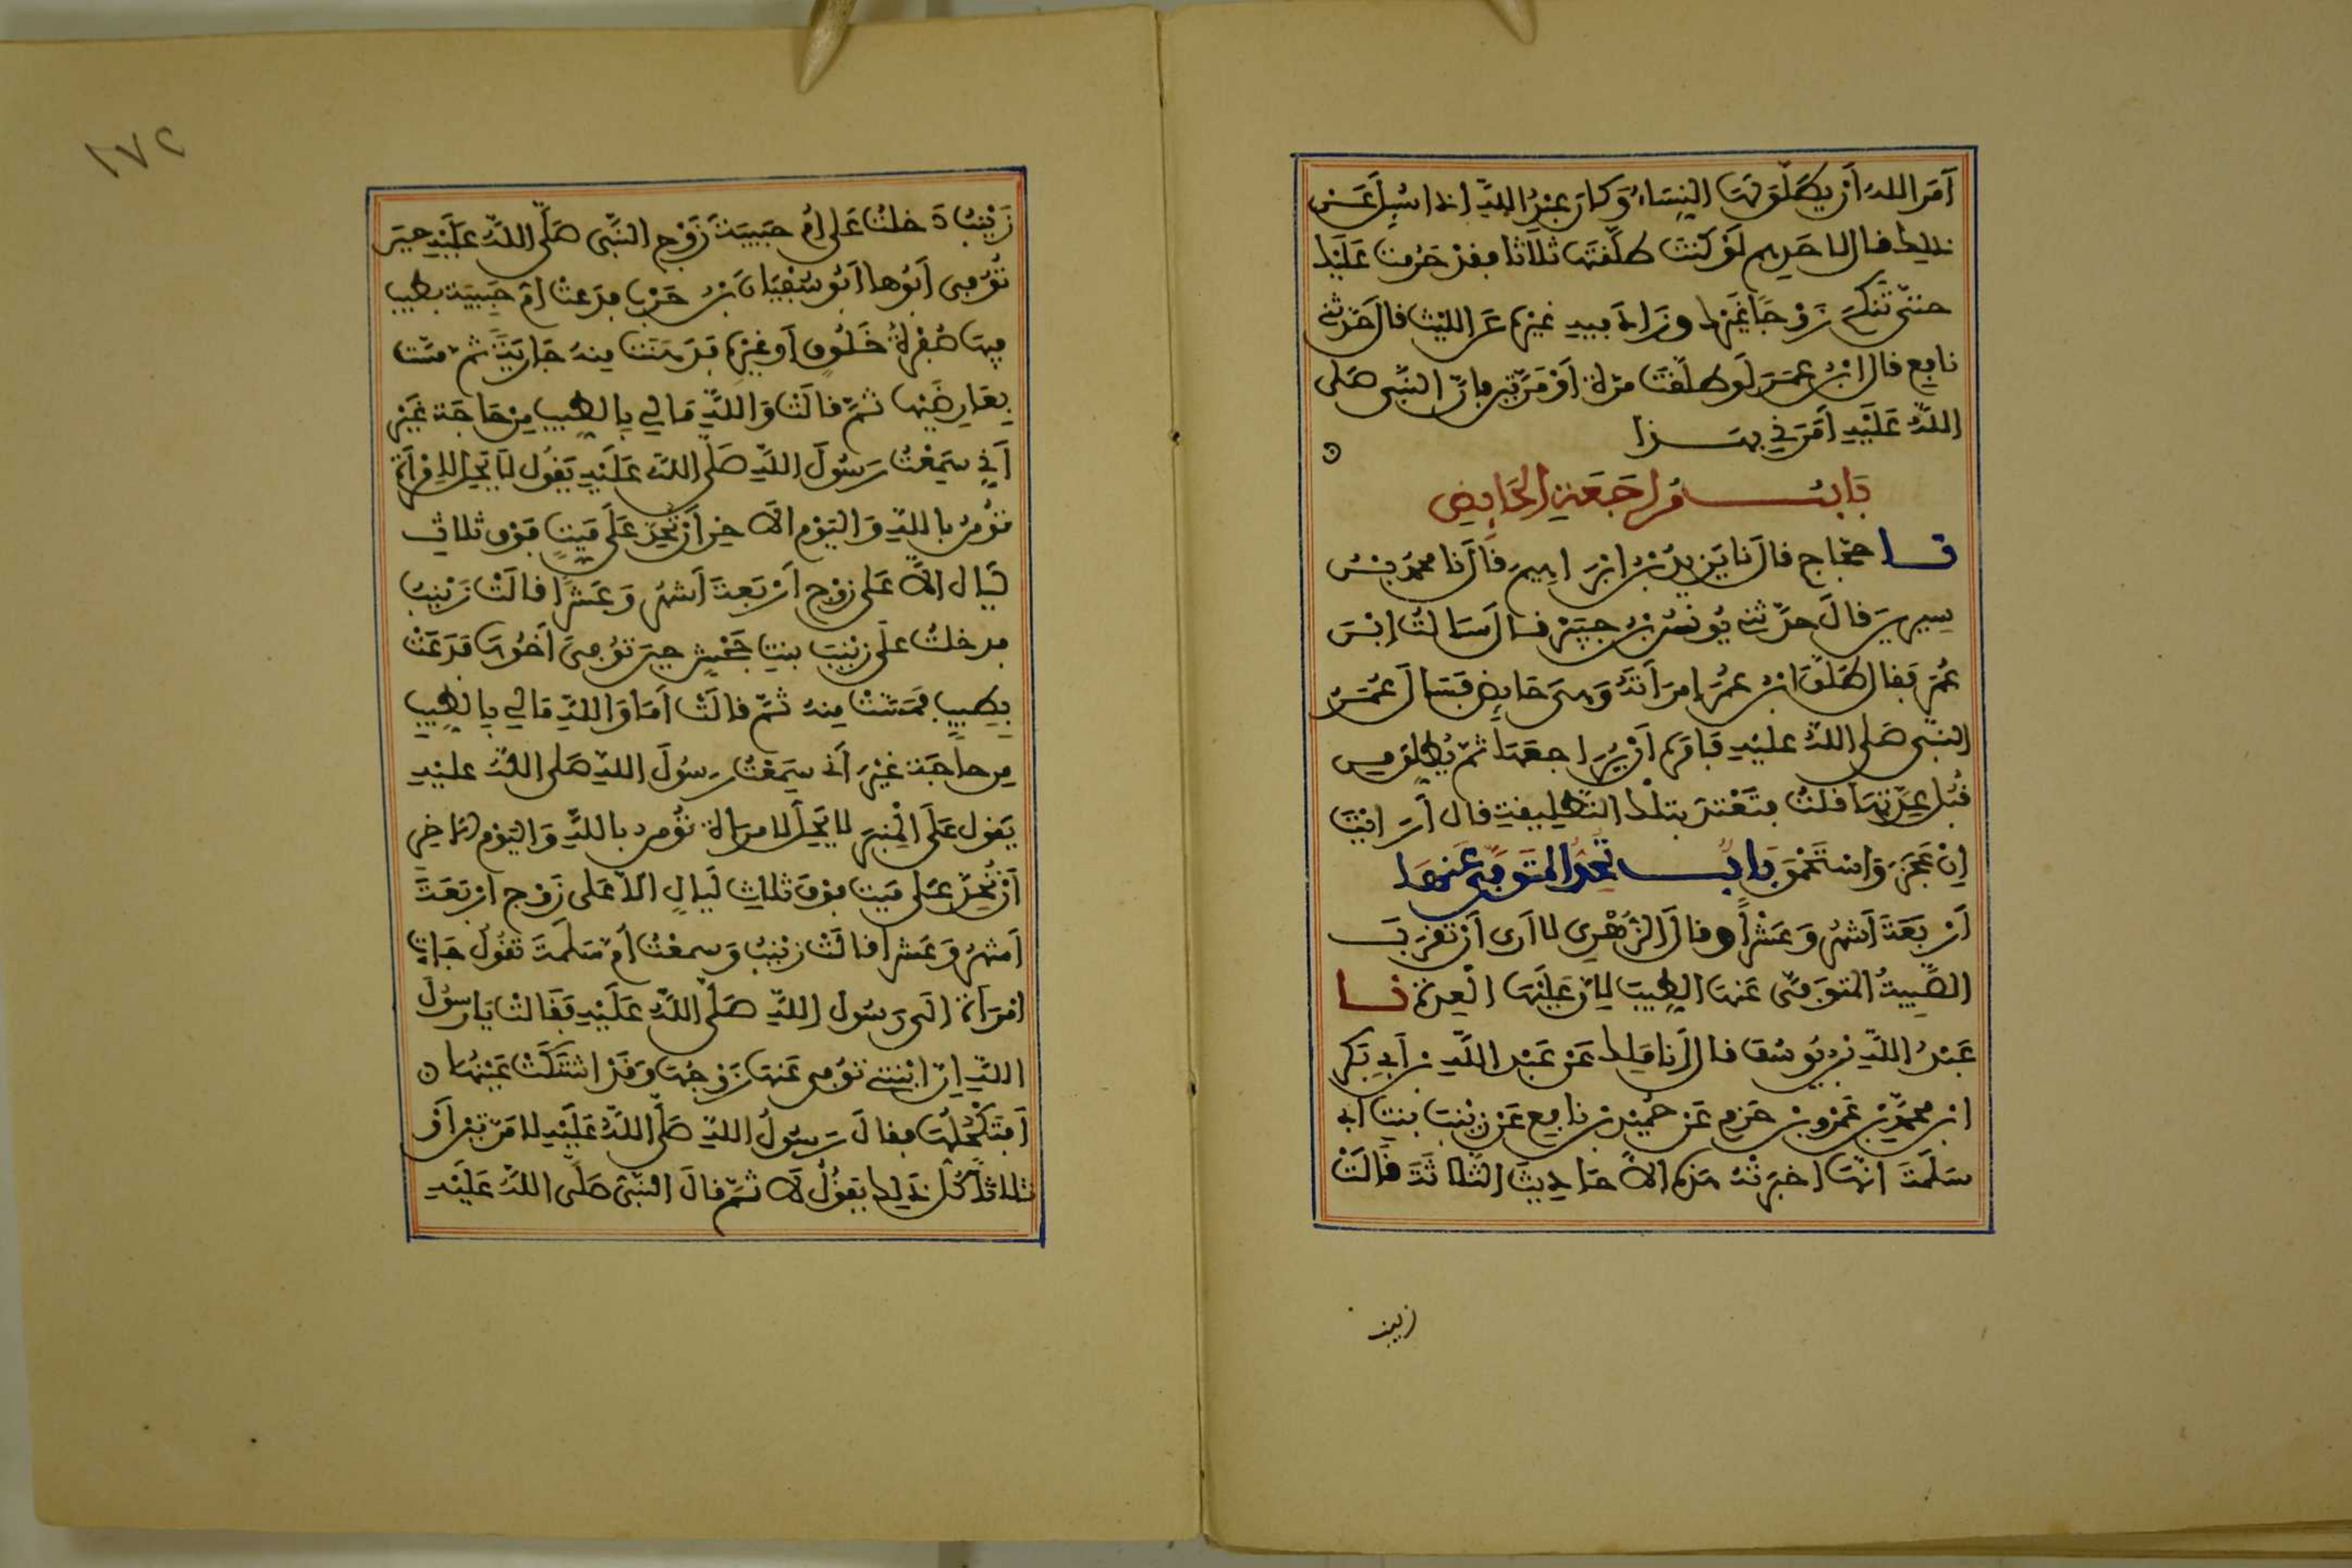 أَمَرَ اللهُ أَن يُطَلَّقَ لَهَا النِّسَاءُ وَكَانَ عَبْدُ اللهِ إذا سُئِلَ عَنْ
ذلك قال لأحدهم لَوْ كنتَ طلّقتَها ثلاثا فقدْ حَرُمت عَلَيْك
حتّى تَنكِحَ زَوْجًا غَيْرَك وزَادَ فيه غيره عن الليث قال حَدّثني
نافع قال ابن عمَرَ لَو طلّقْتَ مرّة أوْ مَرّتين فإنّ النّبي صَلى
اللهُ عَلَيْهِ أمَرَني بهذا
بَابُ مُراجَعَةِ الحَايِضِ
نا حجّاج قال نا يَزِيدُ بْنُ إبْرَاهِيمَ قَالَ نا محمدُ بْنُ
سِيرِينَ قالَ حدّثني يُونسُ بْنُ جبَيْرٍ قال سَالتُ ابْنَ
عُمَرَ فقال طَلّقَ ابن عُمَرَ امرَأَتَهُ وَهيَ حَايِض فَسَالَ عُمَرُ
النبّي صَلى اللهُ عليْهِ فَامَرَه أنْ يُرَاجعَهَا ثمّ يُطلّقَ مِن
قُبُل عِدَّتِهَا قلتُ فتَعْتَدّ بتلك التّطليقةِ قال أَرَايْتَ
إنْ عَجَزَ وَاسْتَحْمَقَ بَابُ تُحِدُّ المتَوَفّى عَنهَا
أَرْبَعَةَ أَشهُرٍ وَعَشْراً وقالَ الزُّهْرِي لا أرى أنْ تقرَبَ
الصَّبِيةُ المتوَفّى عَنهَا الطيبَ لِأنّ عَلَيْهَا العِدّة نا
عَبْدُ اللهِ بن يُوسُف قال أنا مَالِك عَنْ عَبْدِ اللهِ بن أَبي بَكْرِ
ابن محمدِ بْنِ عَمْرِو بْن حَزمٍ عَنْ حُمَيْدِ بن نافِع عَنْ زيْنبَ بنتِ أبي
سَلَمَةَ انّهَا اخبَرَتْهُ هَذه الاحَادِيثَ الثَّلاثَةَ قَالَتْ
زينب
١٧٢
زَيْنَبُ دَخلتُ عَلى أُمّ حَبِيبَةَ زَوْجِ النّبي صَلّى اللهُ عَلَيْهِ حِينَ
تُوُفّيَ أبُوها أبُو سُفْيَانَ بْنُ حَرْبٍ فدَعتْ أمّ حَبِيبَةَ بطيب
فيهَا صُفْرةُ خَلُوقٍ أَو غيره فدَهَنَتْ مِنه جَارِيَةً ثمّ مسّت
بِعَارِضَيْهَا ثمَّ قالَتْ وَاللهِ مَا لِي بِالطيب مِن حَاجَة غَيْرَ
أَنّي سَمِعْتُ رَسُولَ اللهِ صَلّى اللهُ عَلَيْهِ يَقُول لَا يَحِلّ لِامْرَأَةٍ
تُؤْمِنُ باللهِ وَاليَوْمِ الآخِرِ أَنْ تُحِدّ عَلَى مَيّتٍ فَوْقَ ثلاثِ
لَيَال الّا عَلى زَوْج أَرْبَعةَ أَشهُرٍ وَعَشْرًا قالَتْ زَيْنبُ
فدخلتُ على زيْنبَ بنتِ جَحْشٍ حينَ تُوُفّيَ أَخُوهَا فدَعَتْ
بِطِيبٍ فمَسّتْ مِنهُ ثمّ قالَتْ أمَا وَاللهِ مَا لِي بِالطيبِ
مِن حاجَةٍ غيْرَ أَنّي سَمِعْتُ رَسُولَ اللهِ صَلى اللهُ عليْهِ
يَقول عَلَى المِنْبَرِ لا يَحِلّ لامرَأة تُؤْمن باللهِ وَاليَوْم الآخِرِ
أَنْ تُحِدّ عَلى مَيّت فوْقَ ثلاثِ لَيَالٍ الّا عَلى زَوْج ارْبَعَةَ
أَشهُرٍ وَعَشرا قالتْ زيْنبُ وَسمعْتُ أمّ سَلَمَةَ تَقُولُ جَاءتِ
امْرَأة إلى رَسُول اللهِ صَلّى اللهُ عَلَيْهِ فَقَالَتْ يَا رسُولَ
اللهِ إنّ ابْنتي تُوُفي عَنهَا زَوْجُهَا وَقَدْ اشْتَكَتْ عَيْنُهَا
أَفَتَكْحُلُهَا فقالَ رَسُولُ اللهِ صَلّى اللهُ عَلَيْهِ لَا مَرّتيْن أَوْ
ثلاثًا كُلّ ذَلِك يَقُولُ لَا ثمّ قالَ النّبيّ صَلّى اللهُ عَلَيْهِ